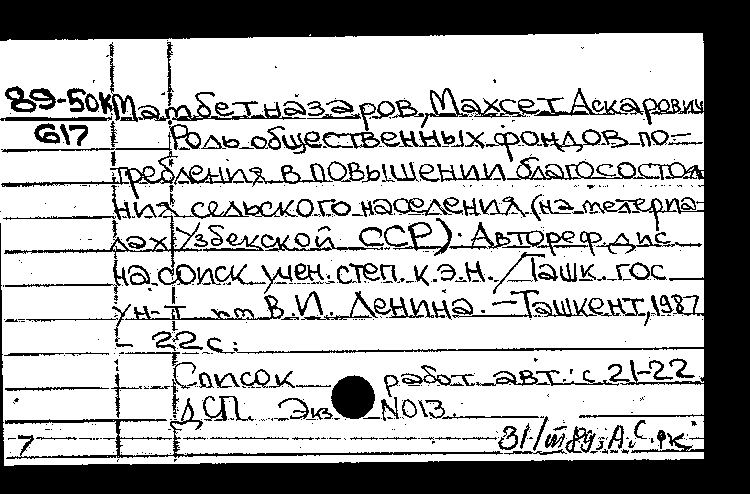 89-50к Мамбетназаров, Махсет Аскарович
617 Роль общественных фондов по-
требления в повышении благосостоя
ния сельского населения (на материа-
лах Узбекской ССР): Автореф. дис.
на соиск. учен. степ. к.э.н. / Ташк. гос.
ун-т им В.И. Ленина. – Ташкент, 1987
– 22 с.
Список работ авт.: с. 21-22.
ДСП. Экз NO13.
7 31/III 89г. А.С.